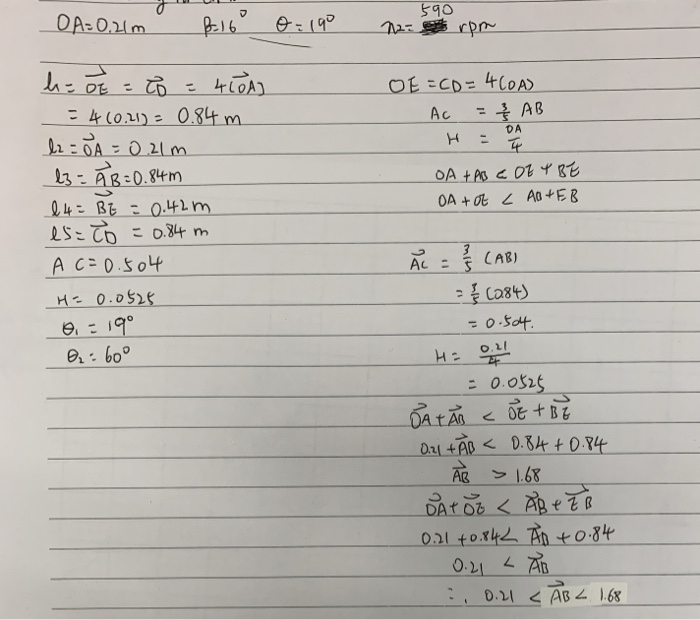 OA=0.21m β=16° θ=19° n2= 590 rpm
l1 = OE = CD = 4(OA)
= 4(0.21) = 0.84 m
l2 = OA = 0.21m
l3 = AB = 0.84m
l4 = BE = 0.42m
l5 = CD = 0.84 m
AC = 0.504
H = 0.0525
θ1 = 19°
θ2 = 60°
OE = CD = 4(OA)
AC = 3/5 AB
H = OA/4
OA + AB < OE + BE
OA + OE < AB + EB
AC = 3/5 (AB)
= 3/5 (0.84)
= 0.504.
H = 0.21/4
= 0.0525
OA + AB < OE + BE
0.21 + AB < 0.84 + 0.84
AB > 1.68
OA + OE < AB + EB
0.21 + 0.84 < AB + 0.84
0.21 < AB
∴ 0.21 < AB < 1.68